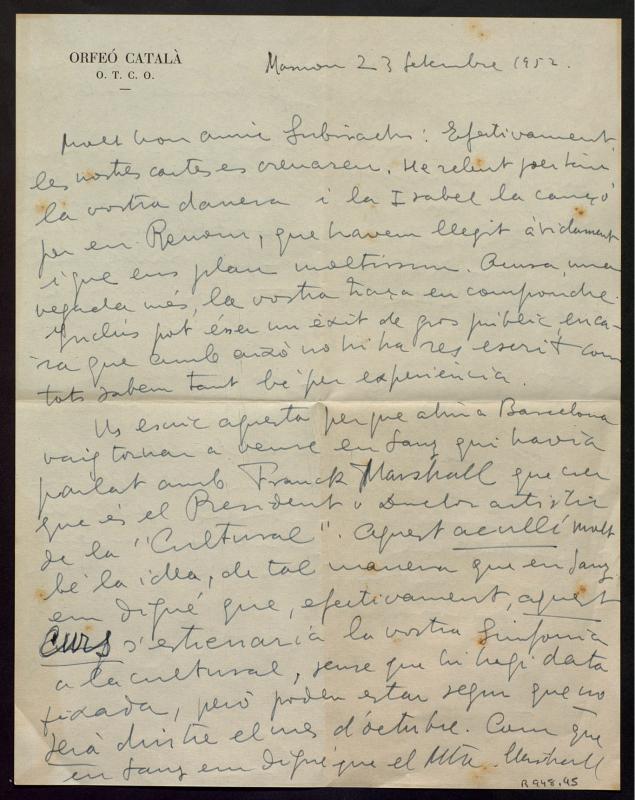 ORFEÓ CATALÀ
O. T. C. O.
Masnou 23 Setembre 1952.
Molt bon amic Subirachs: Efectivament,
les nostres cartes es creuaren. He rebut
la vostra dansera i la Isabel la cançó
per en Renom, que havem llegit àvidament
i que ens plau moltíssim. Acusa, una
vegada més, la vostra traça en compondre.
Inclús pot ésser un èxit de gros públic, enca-
ra que amb això no hi ha res escrit com
tots sabem tant bé per experiencia.
Us escric aquesta perque ahir a Barcelona
vaig tornar a veure en Sanz qui havia
parlat amb Franck Marshall que crec
que és el President o Director artístic
de la "Cultural". Aquest acullí molt
bé la idea, de tal manera que en Sanz
em digué que, efectivament, aquest
curs s'estrenaria la vostra Sinfonia
a la cultural, sense que hi hagi data
fixada, però podeu estar segur que no
serà dintre el mes d'octubre. Com que
en Sanz em digué que el Mtre. Marshall
R 948.45